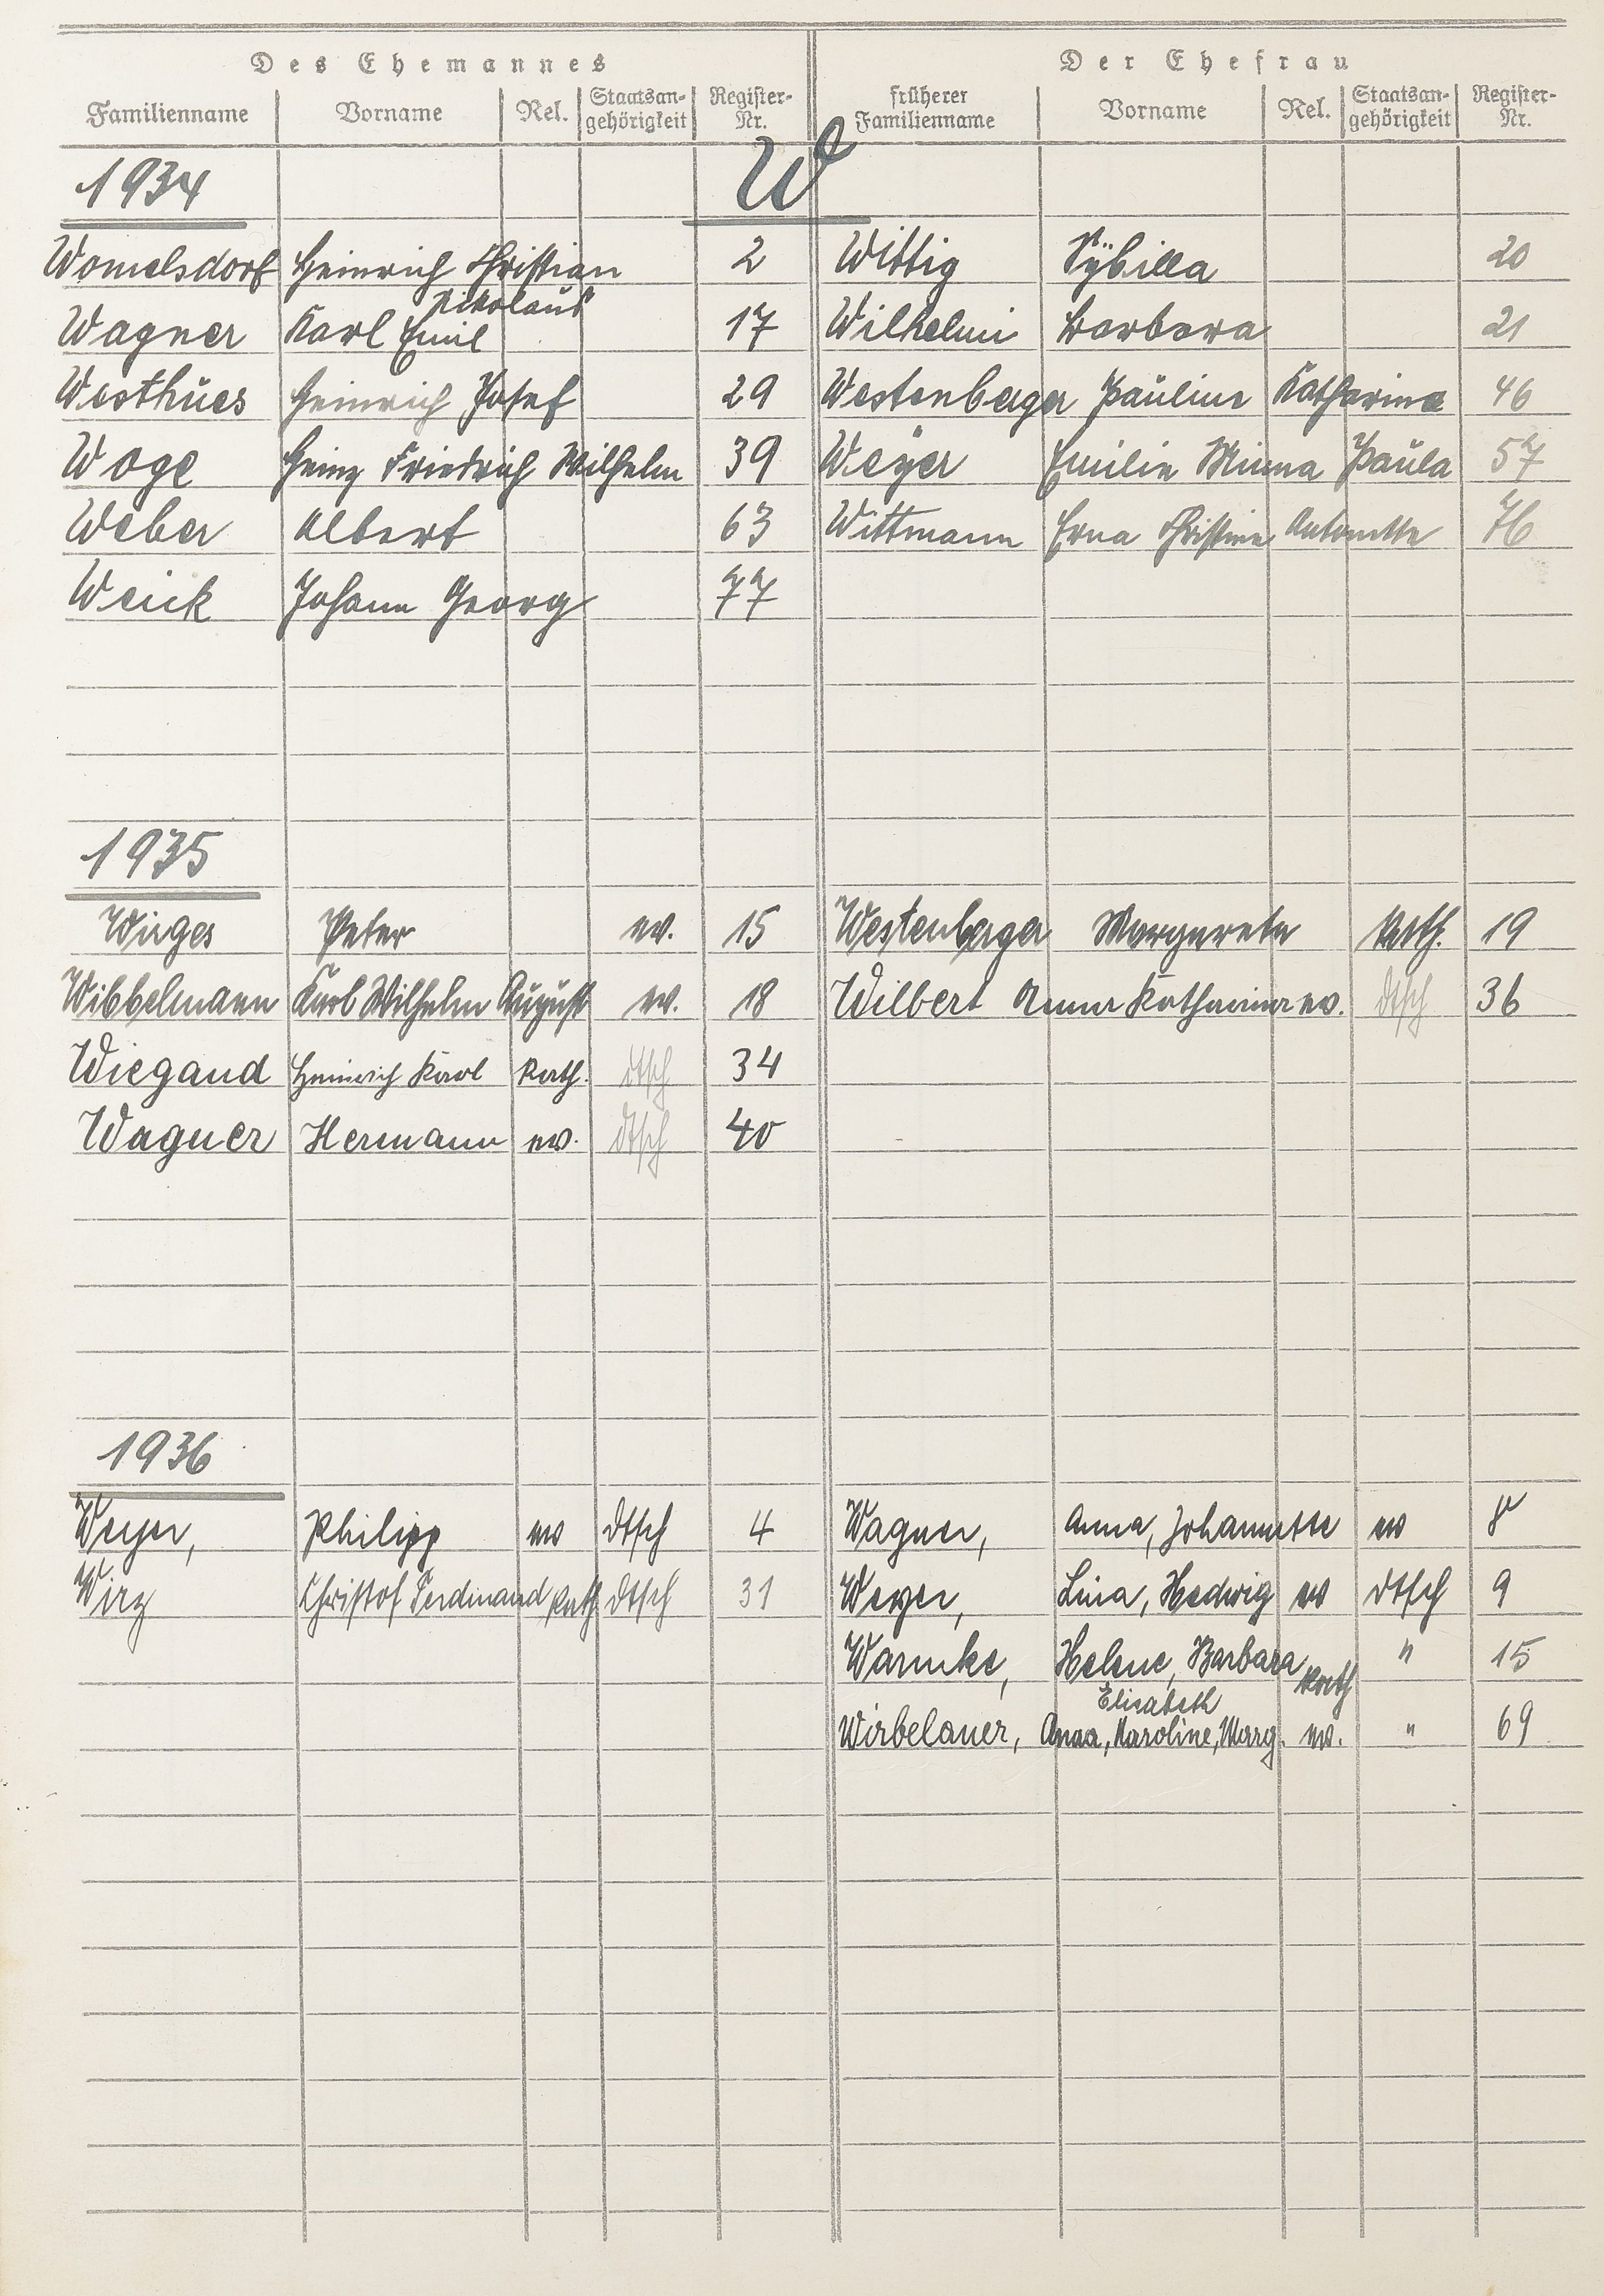 Des Ehemannes Der Ehefrau
Familienname Vorname Rel. Staatsan-gehörigkeit Register-Nr. früherer Familienname Vorname Rel. Staatsan-gehörigkeit Register-Nr.
1934 W
Womelsdorf Heinrich Christian 2 Wittig Sÿbilla 20
Nikolaus
Wagner Karl Emil 17 Wilhelmi Barbara 21
Westhues Heinrich Josef 29 Westenberger Pauline Katharina 46
Woge Heinz Friedrich Wilhelm 39 Weÿer Emilie Minna Paula 57
Weber Albert 63 Wittmann Erna Christine Antonette 76
Weick Johann Georg 77
1935
Wirges Peter ev. 15 Westenberger Margarete kath. 19
Wibbelmann Karl Wilhelm August ev. 18 Wilbert Anna Katharina ev. dtsch 36
Wiegand Heinrich Karl kath. dtsch 34
Wagner Hermann ev. dtsch 40
1936
Weyer, Philipp ev dtsch 4 Wagner, Anna, Johannette ev 8
Wirz Christof Ferdinand kath. dtsch 31 Weyer, Lina, Hedwig ev dtsch 9
Warnke, Helene, Barbara kath " 15
Elisabeth
Wirbelauer, Anna, Karoline, Marg. ev. " 69